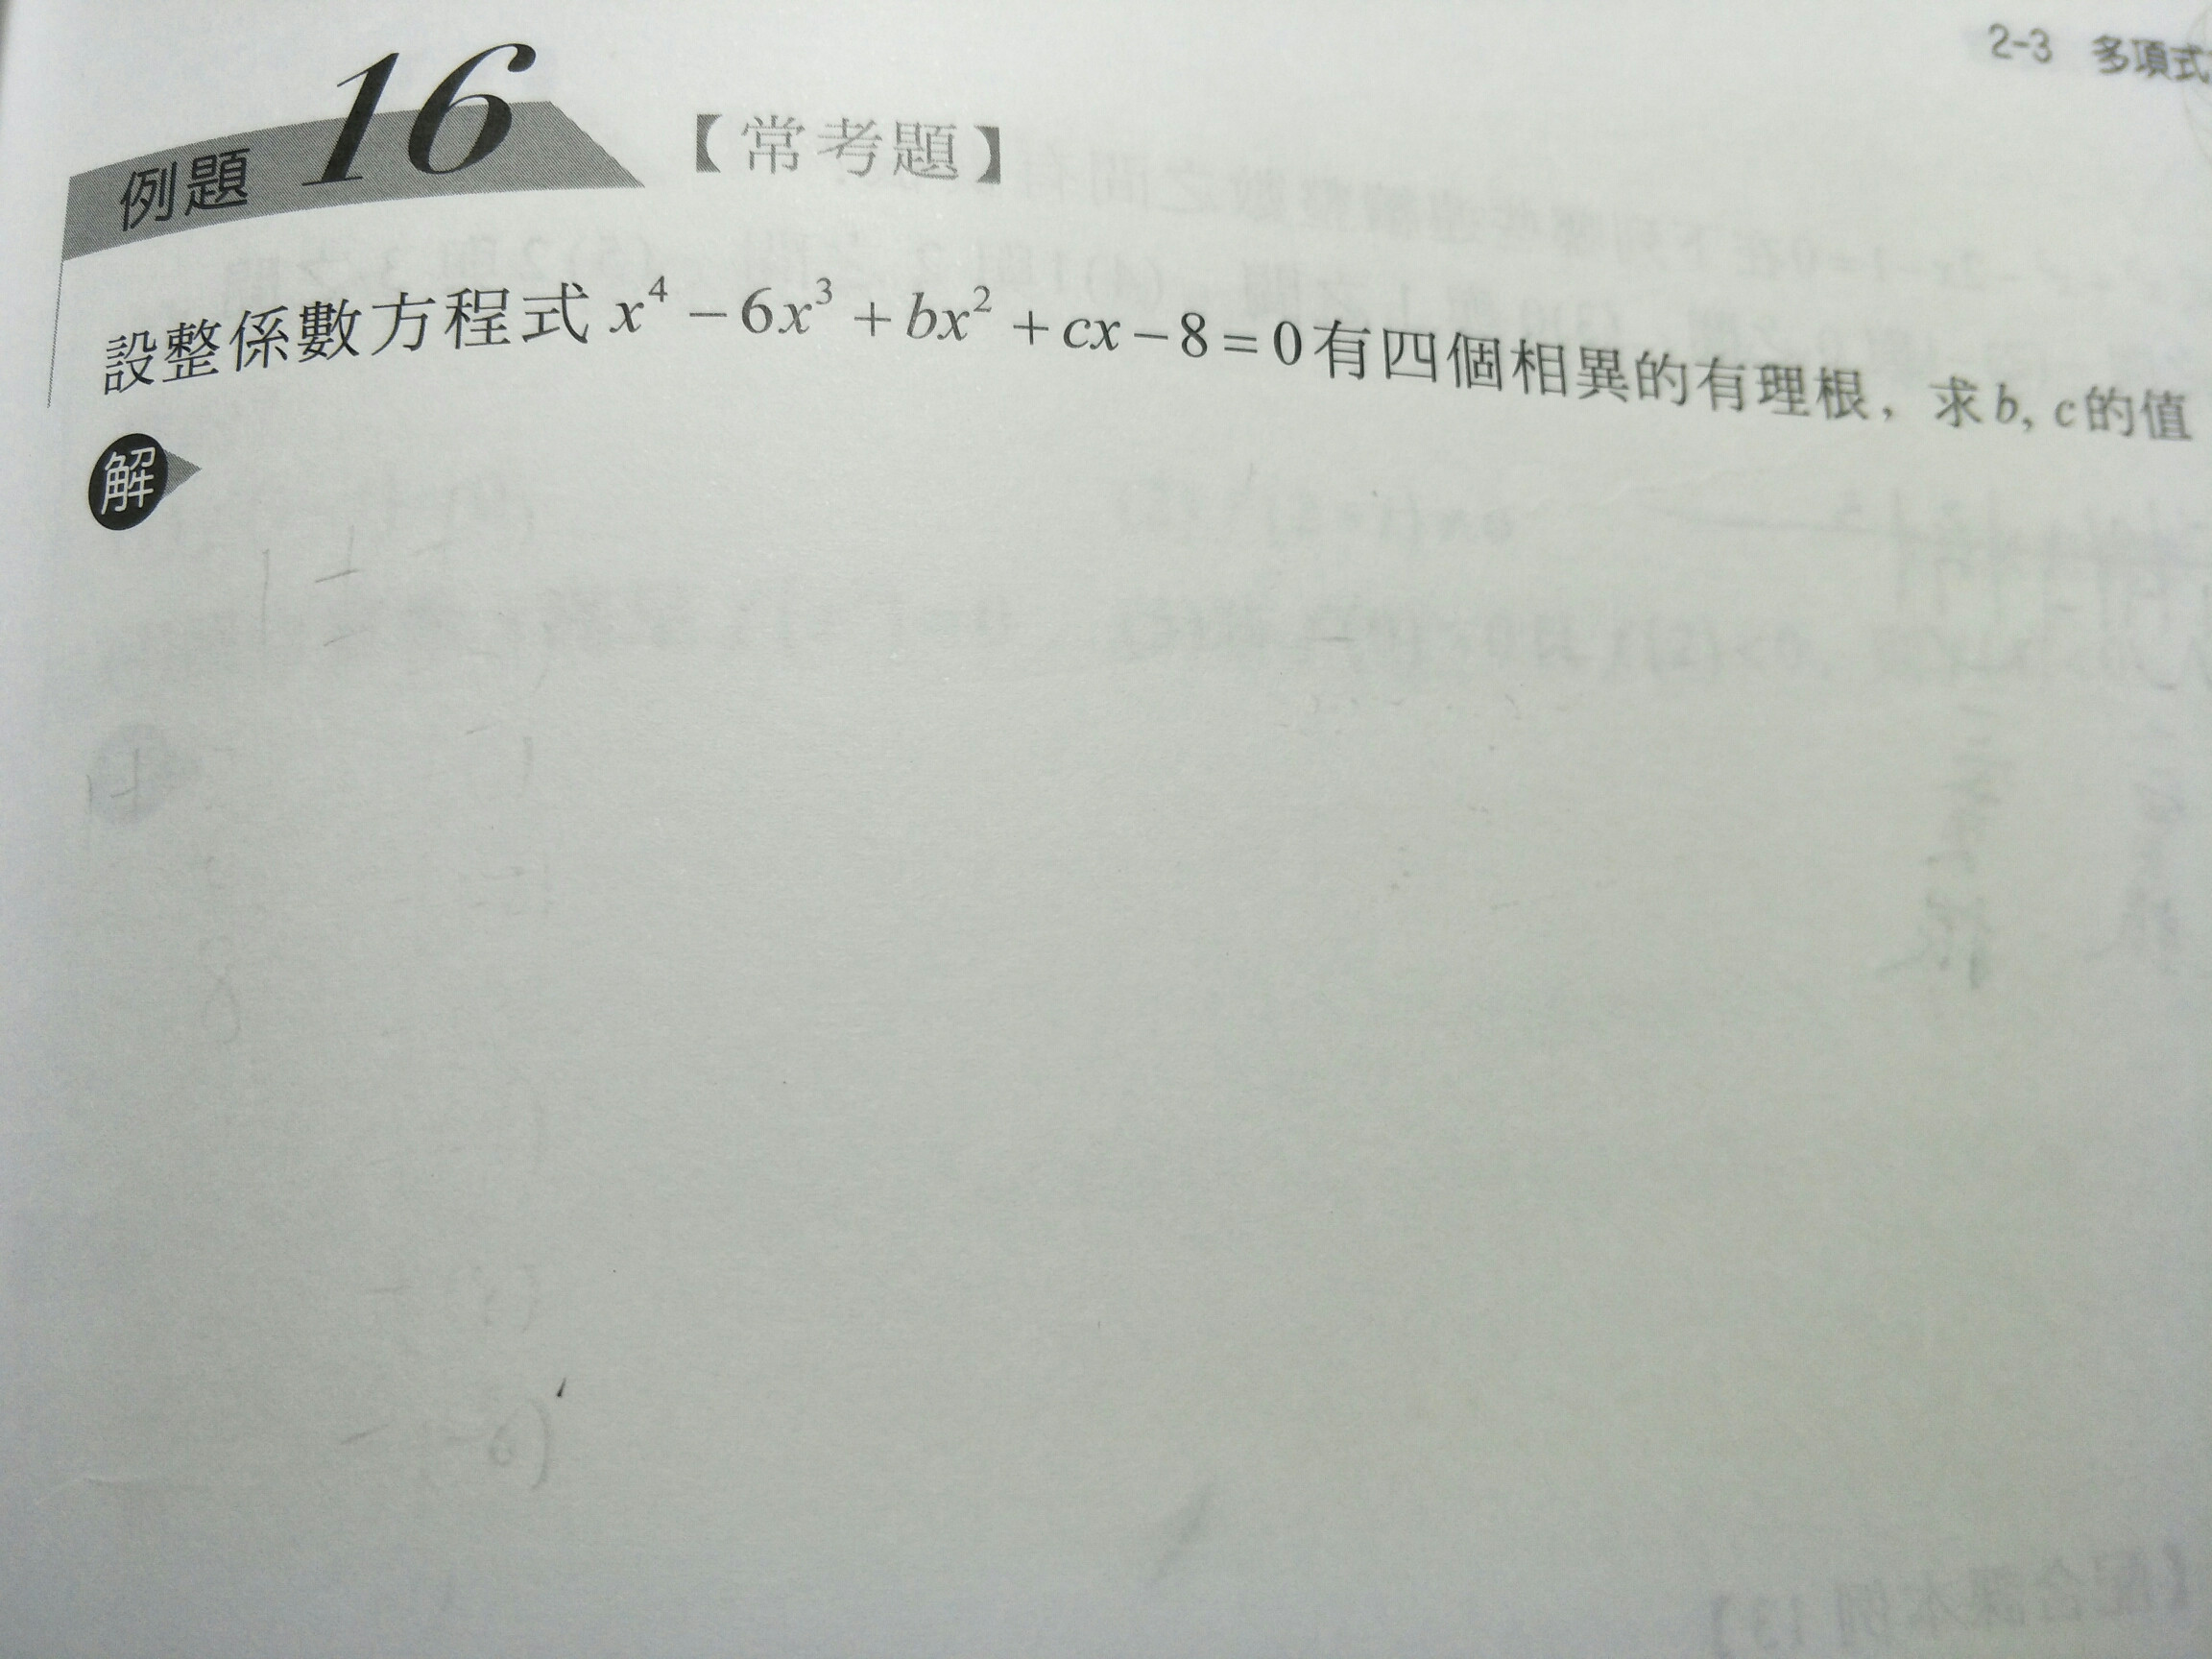 2-3 多項式
例題 16 【常考題】
設整係數方程式 x⁴ − 6x³ + bx² + cx − 8 = 0 有四個相異的有理根，求 b, c 的值
解